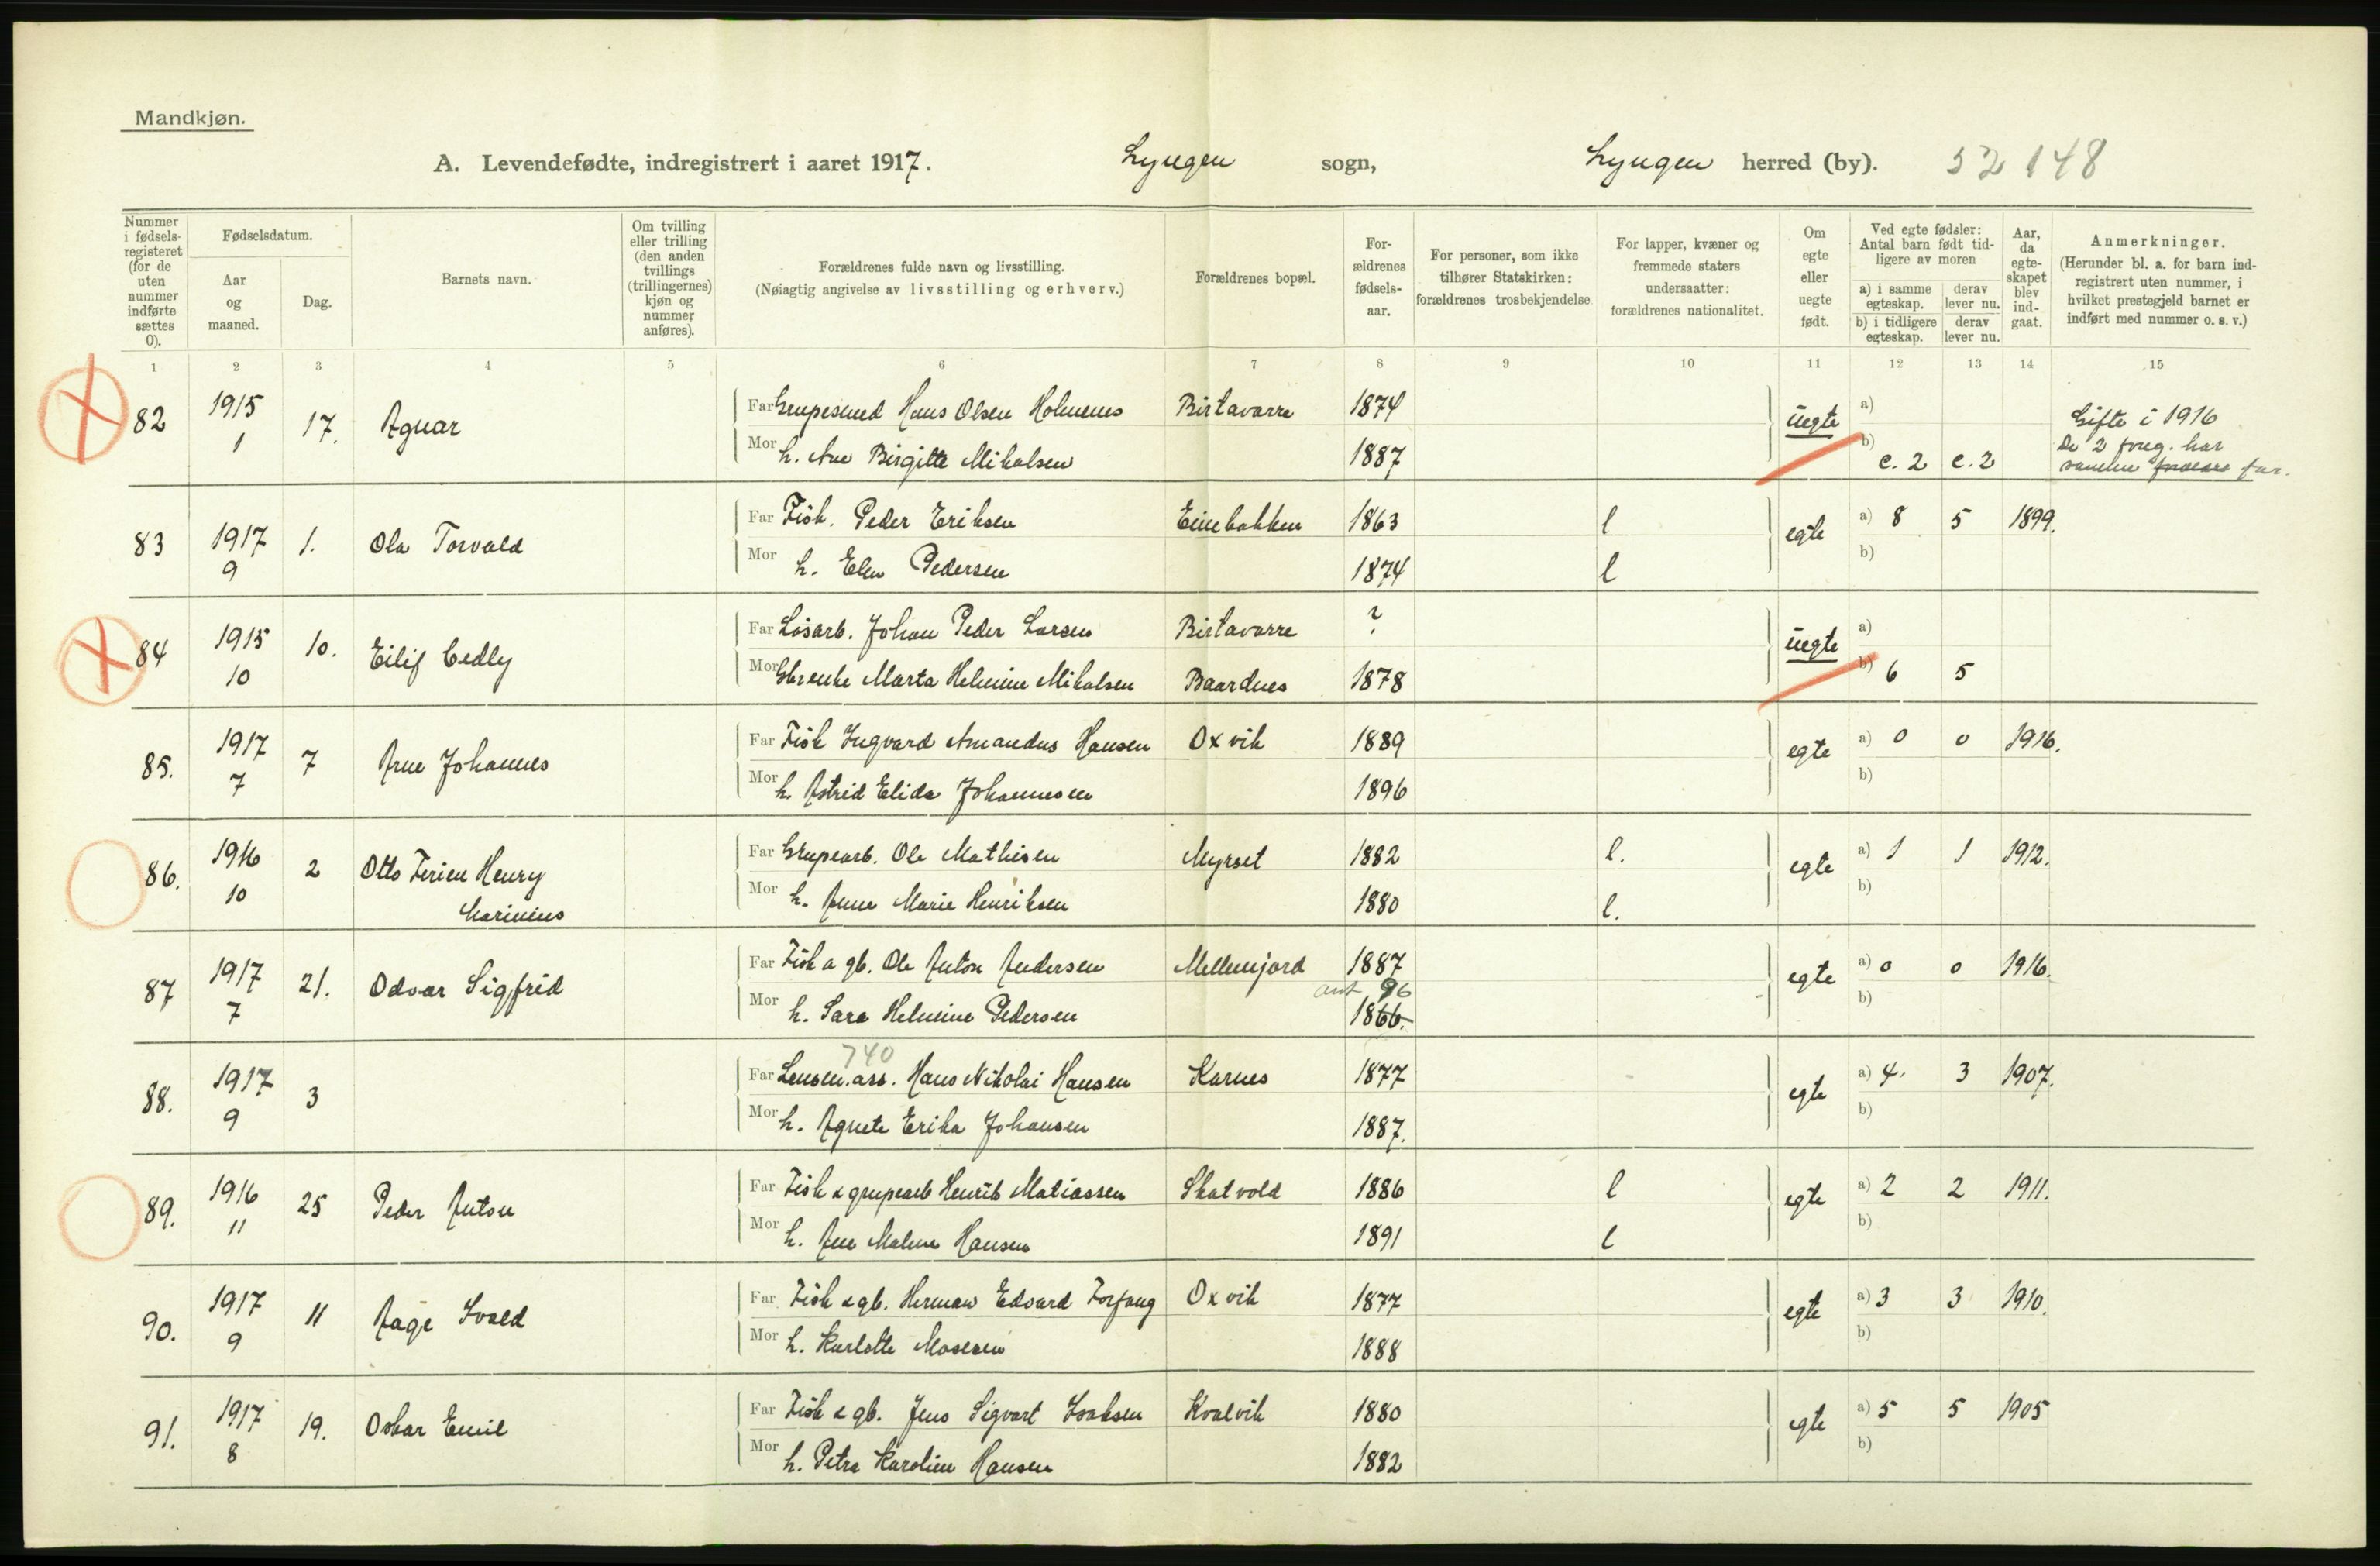 Mandkjøn.
A. Levendefødte, indregistrert i aaret 1917. Lyngen sogn, Lyngen herred (by). 52 148
Nummer i fødsels-registeret (for de uten nummer indførte sættes 0).
Fødselsdatum.
Aar og maaned.
Dag.
Barnets navn.
Om tvilling eller trilling (den anden tvillings (trillingernes) kjøn og nummer anføres).
Forældrenes fulde navn og livsstilling.
(Nøiagtig angivelse av livsstilling og erhverv.)
Forældrenes bopæl.
For-ældrenes fødsels-aar.
For personer, som ikke tilhører Statskirken: forældrenes trosbekjendelse.
For lapper, kvæner og fremmede staters undersaatter: forældrenes nationalitet.
Om egte eller uegte født.
Ved egte fødsler: Antal barn født tid-ligere av moren
a) i samme egteskap. derav lever nu.
b) i tidligere egteskap. derav lever nu.
Aar, da egte-skapet blev ind-gaat.
Anmerkninger.
(Herunder bl. a. for barn ind-registrert uten nummer, i hvilket prestegjeld barnet er indført med nummer o. s. v.)
1 2 3 4 5 6 7 8 9 10 11 12 13 14 15
82 1915 1 17. Agnar
Far Grupesmed Hans Olsen Holmenes Birtavarre 1874 uegte a) Gifte i 1916
Mor h. Ane Birgitte Mikalsen 1887 b) c. 2 c. 2 De 2 foreg. har samme far.
83 1917 9 1. Ola Torvald
Far Fisk. Peder Eriksen Einebakken 1863 l egte a) 8 5 1899.
Mor h. Elen Pedersen 1874 l b)
84 1915 10 10. Eilif Cedly
Far Løsarb. Johan Peder Larsen Birtavarre ? uegte a)
Mor Gbrenke Marta Helmine Mikalsen Baardnes 1878 b) 6 5
85. 1917 7 7 Arne Johannes
Far Fisk Ingvard Amandus Hansen Oxvik 1889 egte a) 0 0 1916.
Mor h. Astrid Elida Johannesen 1896 b)
86. 1916 10 2 Otto Ferien Henry Marinius
Far Grupearb. Ole Mathisen Myrset 1882 l. egte a) 1 1 1912.
Mor h. Anne Marie Henriksen 1880 l. b)
87 1917 7 21. Odvar Sigfrid
Far Fisk a gb. Ole Anton Andersen Mellemjord 1887 egte a) 0 0 1916.
ant 96
Mor h. Sara Helmine Pedersen 1866. b)
740
88. 1917 9 3
Far Lensm. ass. Hans Nikolai Hansen Karnes 1877 egte a) 4. 3 1907.
Mor h. Agnete Erika Johansen 1887. b)
89. 1916 11 25 Peder Anton
Far Fisk & grupearb Henrik Matiassen Skatvold 1886 l egte a) 2 2 1911.
Mor h. Ane Malene Hansen 1891 l b)
90. 1917 9 11 Aage Ivald
Far Fisk & gb. Herman Edvard Forfang Oxvik 1877 egte a) 3 3 1910.
Mor h. Karlotte Mosesen 1888 b)
91. 1917 8 19. Oskar Emil
Far Fisk & gb. Jens Sigvart Isaksen Kvalvik 1880 egte a) 5 5 1905
Mor h. Petra Karoline Hansen 1882 b)